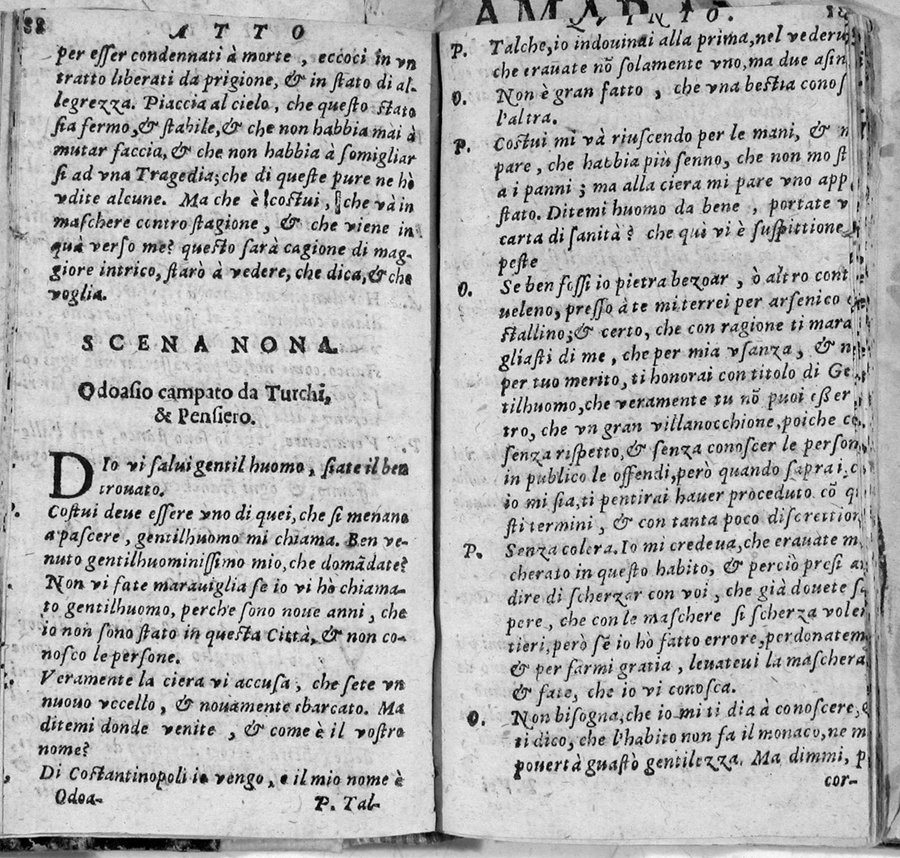 88 ATTO
per esser condennati à morte, eccoci in vn
tratto liberati da prigione, & in stato di al-
legrezza. Piaccia al cielo, che questo stato
sia fermo, & stabile, & che non habbia mai à
mutar faccia, & che non habbia à somigliar
si ad vna Tragedia; che di queste pure ne hò
vdite alcune. Ma che è costui, che và in
maschere contro stagione, & che viene in
quà verso me? questo sarà cagione di mag-
giore intrico, starò à vedere, che dica, & che
voglia.
SCENA NONA.
Odoasio campato da Turchi,
& Pensiero.
DIo vi salui gentil huomo, siate il ben
trouato.
P. Costui deue essere vno di quei, che si menano
a pascere, gentilhuomo mi chiama. Ben ve-
nuto gentilhuominissimo mio, che domādate?
Non vi fate marauiglia se io vi hò chiama-
to gentilhuomo, perche sono noue anni, che
io non sono stato in questa Città, & non co-
nosco le persone.
Veramente la ciera vi accusa, che sete vn
nuouo vccello, & nouamente sbarcato. Ma
ditemi donde venite, & come è il vostro
nome?
Di Costantinopoli io vengo, e il mio nome è
Odoa- P. Tal-
P. Talche, io indouinai alla prima, nel vederui
che erauate nō solamente vno, ma due asin
O. Non è gran fatto, che vna bestia conos
l'altra.
P. Costui mi và riuscendo per le mani, & m
pare, che habbia più senno, che non mo st
a i panni; ma alla ciera mi pare vno app
stato. Ditemi huomo da bene, portate v
carta di sanità? che quì vi è suspittione
peste
O. Se ben fossi io pietra bezoar, ò altro cont
ueleno, presso à te mi terrei per arsenico c
stallino; & certo, che con ragione ti mara
gliasti di me, che per mia vsanza, & n
per tuo merito, ti honorai con titolo di Ge
tilhuomo, che veramente tu nō puoi esser
tro, che vn gran villanocchione, poiche co
senza rispetto, & senza conoscer le person
in publico le offendi, però quando saprai c
io mi sia, ti pentirai hauer proceduto cō q
sti termini, & con tanta poco discrettion
P. Senza colera. Io mi credeua, che erauate m
cherato in questo habito, & perciò presi ar
dire di scherzar con voi, che già douete s
pere, che con le maschere si scherza volen
tieri, però se io hò fatto errore, perdonatem
& per farmi gratia, leuateui la maschera
& fate, che io vi conosca.
O. Non bisogna, che io mi ti dia à conoscere,
ti dico, che l'habito non fa il monaco, ne m
pouertà guastò gentilezza. Ma dimmi, p
cor-